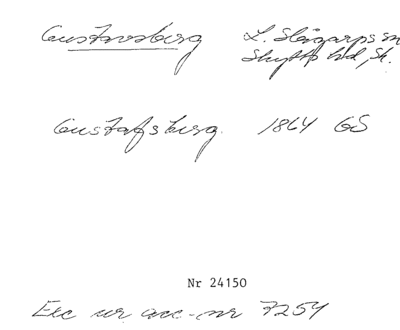 Gustavsberg L. Slågarps sn
Skytts hd, Sk.
Gustafsberg. 1864 GS
Nr 24150
Exc ur acc-nr 7254